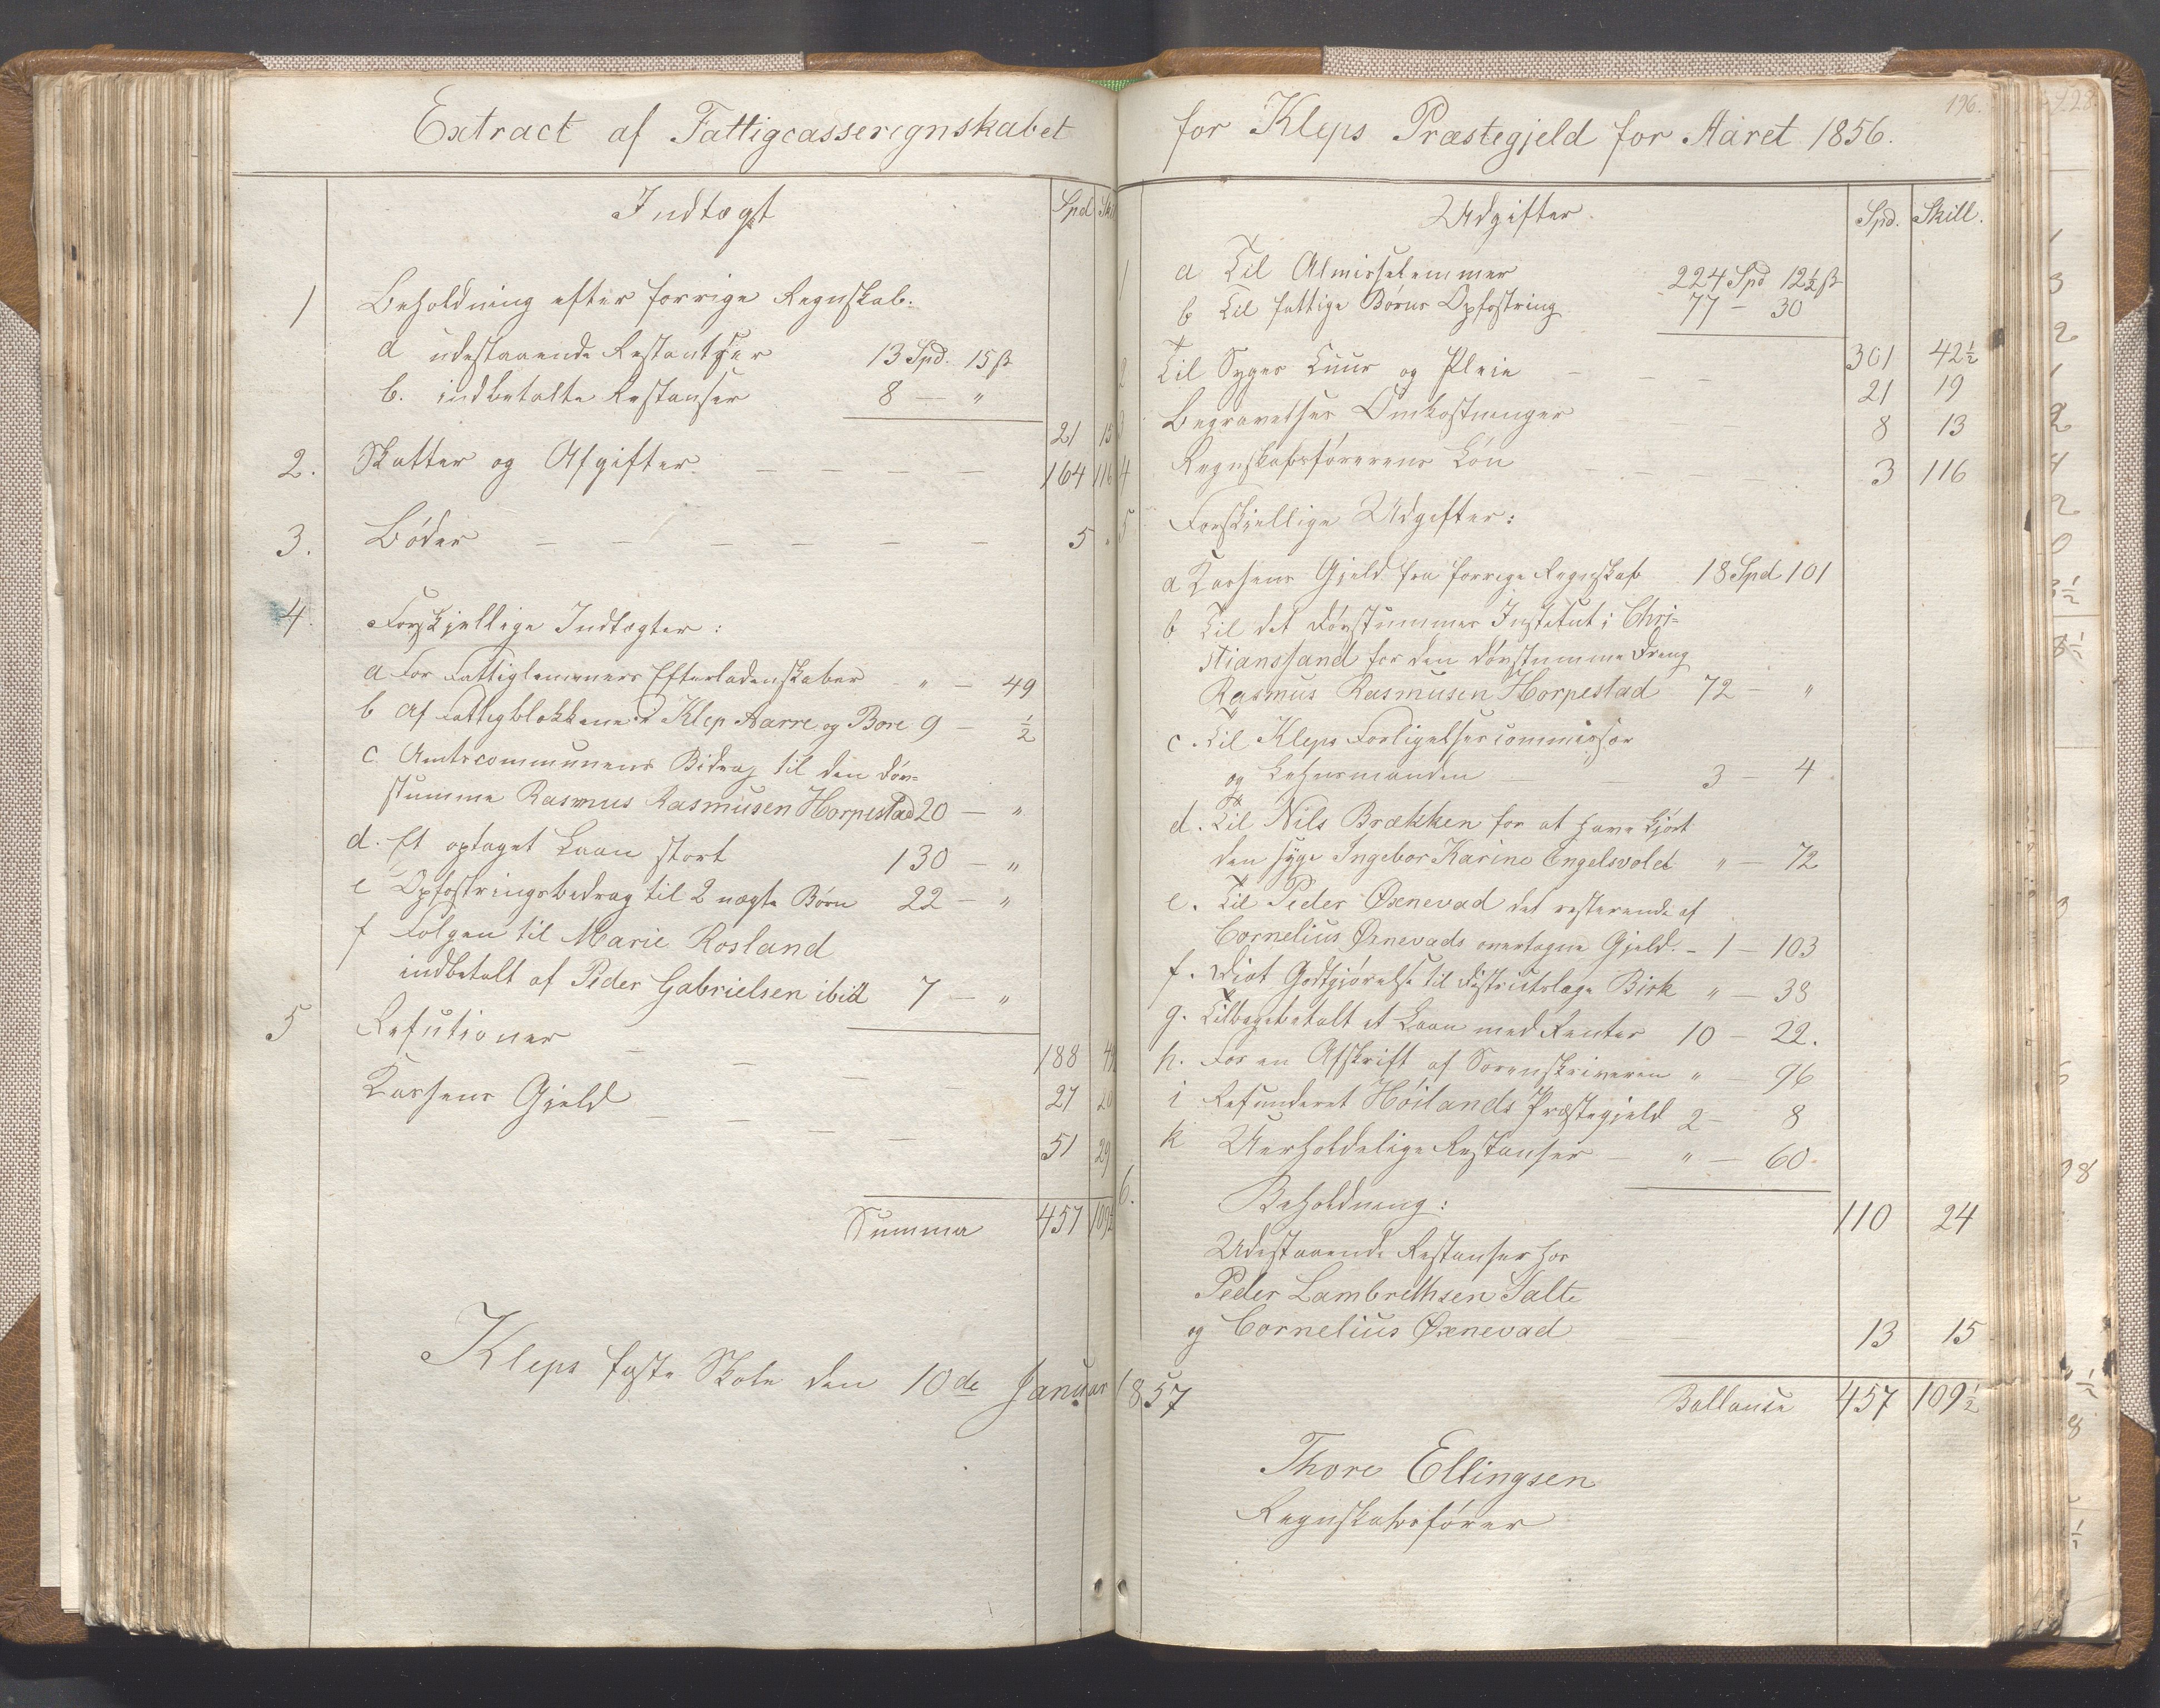 Extract af Fattigcasseregnskabet
Indtægt Spd Sk
1 Beholdning efter forrige Regnskab:
a udestaaende Restantser 13 Spd. 15 ß
b. indbetalte Restanser 8 — "
21 15
2. Skatter og Afgifter — — — — — 164 116
3. Bøder — — — — — — — 5 "
4. Forskjellige Indtægter:
a For Fattiglemmers Efterladenskaber " — 49
b Af Fattigblokkene i Klep Aarre og Bore 9 — ½
c Amtscommunens Bidrag til den døv-
stumme Rasmus Rasmusen Horpestad 20 — "
d. Et optaget Laan stort 130 — "
e Opfostringsbidrag til 2 uægte Børn 22 — "
f Følgen til Marie Rosland
indbetalt af Peder Gabrielsen ibid 7 — "
188 49
5 Refutioner — — — — 27 20
Kassens Gjeld — — — — 51 29
Summa 457 109½
Kleps faste Skole den 10de Januar 1857
for Kleps Præstegjeld for Aaret 1856.
196.
Udgifter. Spd. Skill.
1 a Til Almisselemmer 224 Spd 12½ ß
b Til fattige Børns Opfostring 77 — 30
301 42½
2 Til Syges Cuur og Pleie — — — 21 19
3 Begravelses Omkostninger — — 8 13
4 Regnskabsførerens Løn — — — — 3 116
5 Forskjellige Udgifter:
a Kassens Gjeld fra forrige Regnskab 18 Spd 101
b Til det døvstummes Institut i Chri-
stianssand for den døvstumme Dreng
Rasmus Rasmusen Horpestad 72 — "
c. Til Kleps Forligelsescommissær
og Lehnsmanden — — 3 4
d. Til Nils Brækken for at have kjørt
den syge Ingebor Karine Engelsvold " — 72
e. Til Peder Øxnevad det resterende af
Cornelius Øxnevads overtagne Gjeld. — 1 — 103
f. Diæt Godtgjørelse til Districtslæge Birk " — 38
g. Tilbagebetalt et Laan med Renter 10 — 22.
h. For en Afskrift af Sorenskriveren " — 96
i Refunderet Høilands Præstegjeld 2 — 8
k Uerholdelige Restanser — " — 60.
110 24
6. Beholdning:
Udestaaende Restanser hos
Peder Lambrethsen Salte
og Cornelius Øxnevad 13 15
Ballanse 457 109½
Thore Ellingsen
Regnskabsfører